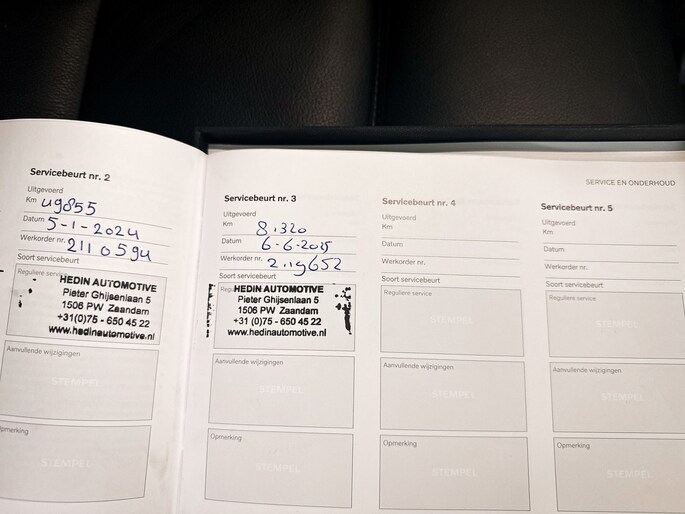 SERVICE EN ONDERHOUD
Servicebeurt nr. 2
Uitgevoerd
Km 49855
Datum 5-1-2024
Werkorder nr. 2110594
Soort servicebeurt
Reguliere service
HEDIN AUTOMOTIVE
Pieter Ghijsenlaan 5
1506 PW Zaandam
+31(0)75 - 650 45 22
www.hedinautomotive.nl
Aanvullende wijzigingen
STEMPEL
Opmerking
STEMPEL
Servicebeurt nr. 3
Uitgevoerd
Km
Datum 6-6-2025
Werkorder nr.
Soort servicebeurt
HEDIN AUTOMOTIVE
Pieter Ghijsenlaan 5
1506 PW Zaandam
+31 (0)75 - 650 45 22
www.hedinautomotive.nl
Aanvullende wijzigingen
STEMPEL
Opmerking
STEMPEL
Servicebeurt nr. 4
Uitgevoerd
Km
Datum
Werkorder nr.
Soort servicebeurt
Reguliere service
STEMPEL
Aanvullende wijzigingen
STEMPEL
Opmerking
STEMPEL
Servicebeurt nr. 5
Uitgevoerd
Km
Datum
Werkorder nr.
Soort servicebeurt
Reguliere service
STEMPEL
Aanvullende wijzigingen
STEMPEL
Opmerking
STEMPEL